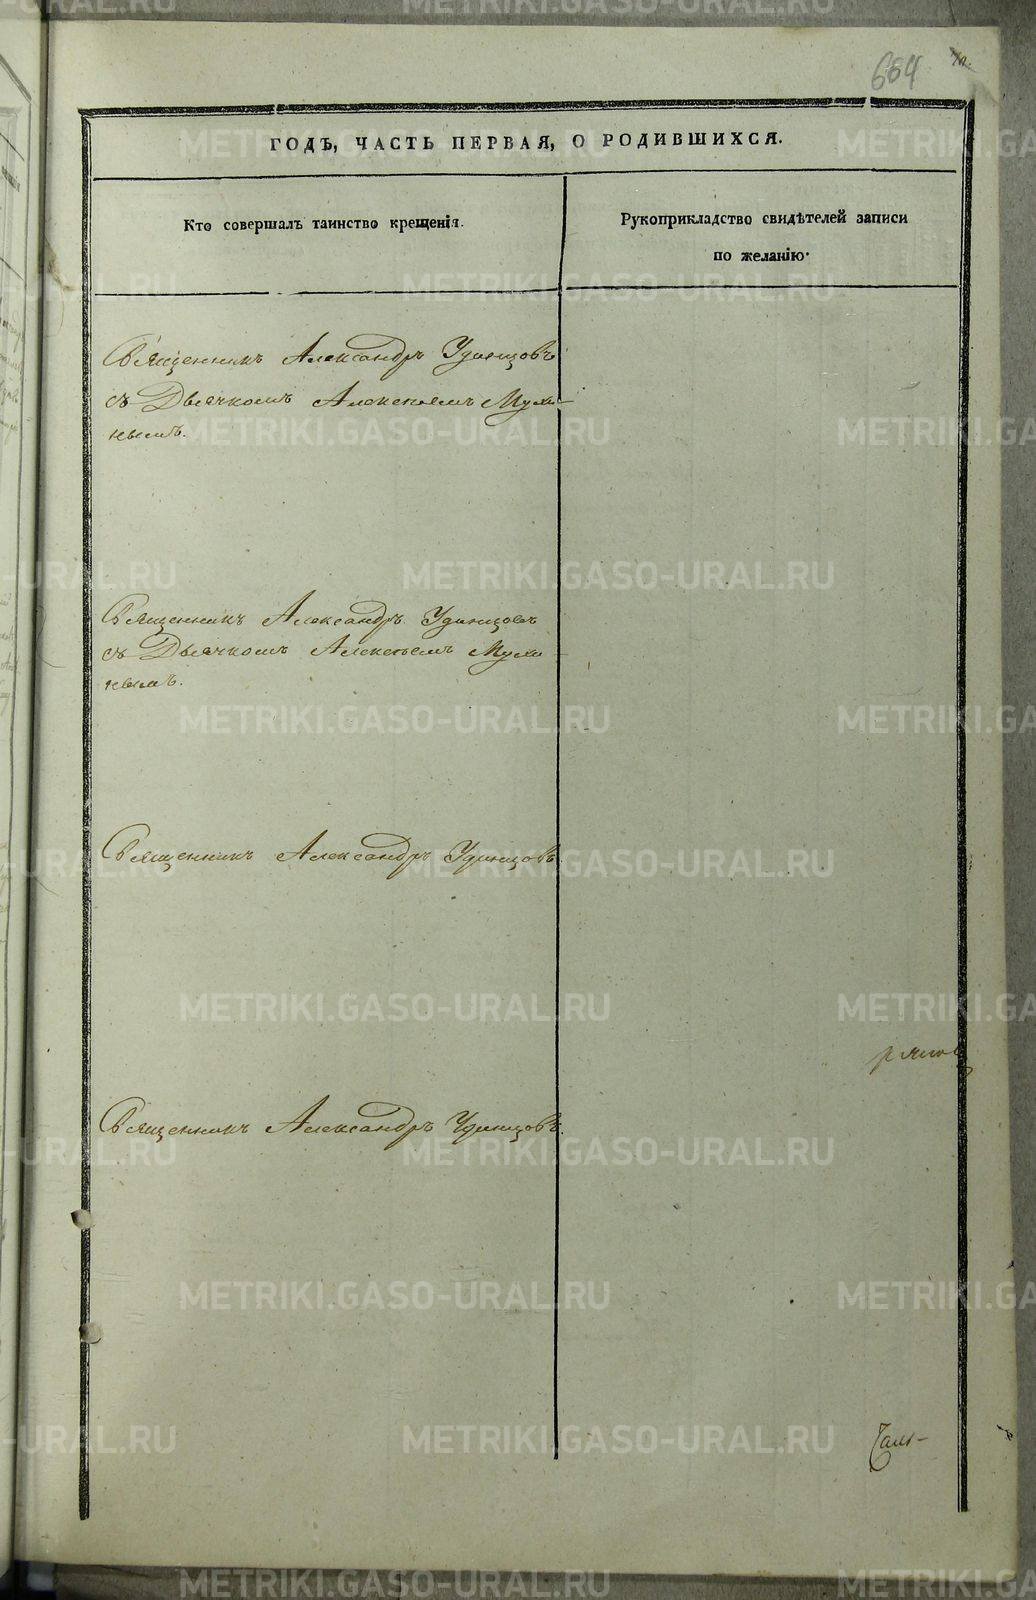 664
ГОДЪ, ЧАСТЬ ПЕРВАЯ, О РОДИВШИХСЯ.
Кто совершалъ таинство крещенія.
Рукоприкладство свидѣтелей записи
по желанію.
Священникъ Александръ Удинцовъ
съ Дьячкомъ Алексѣемъ Мухи-
нымъ.
Священникъ Александръ Удинцовъ
съ Дьячкомъ Алексѣемъ Мухи
нымъ.
Священникъ Александръ Удинцовъ.
Священникъ Александръ Удинцовъ.
METRIKI.GASO-URAL.RU